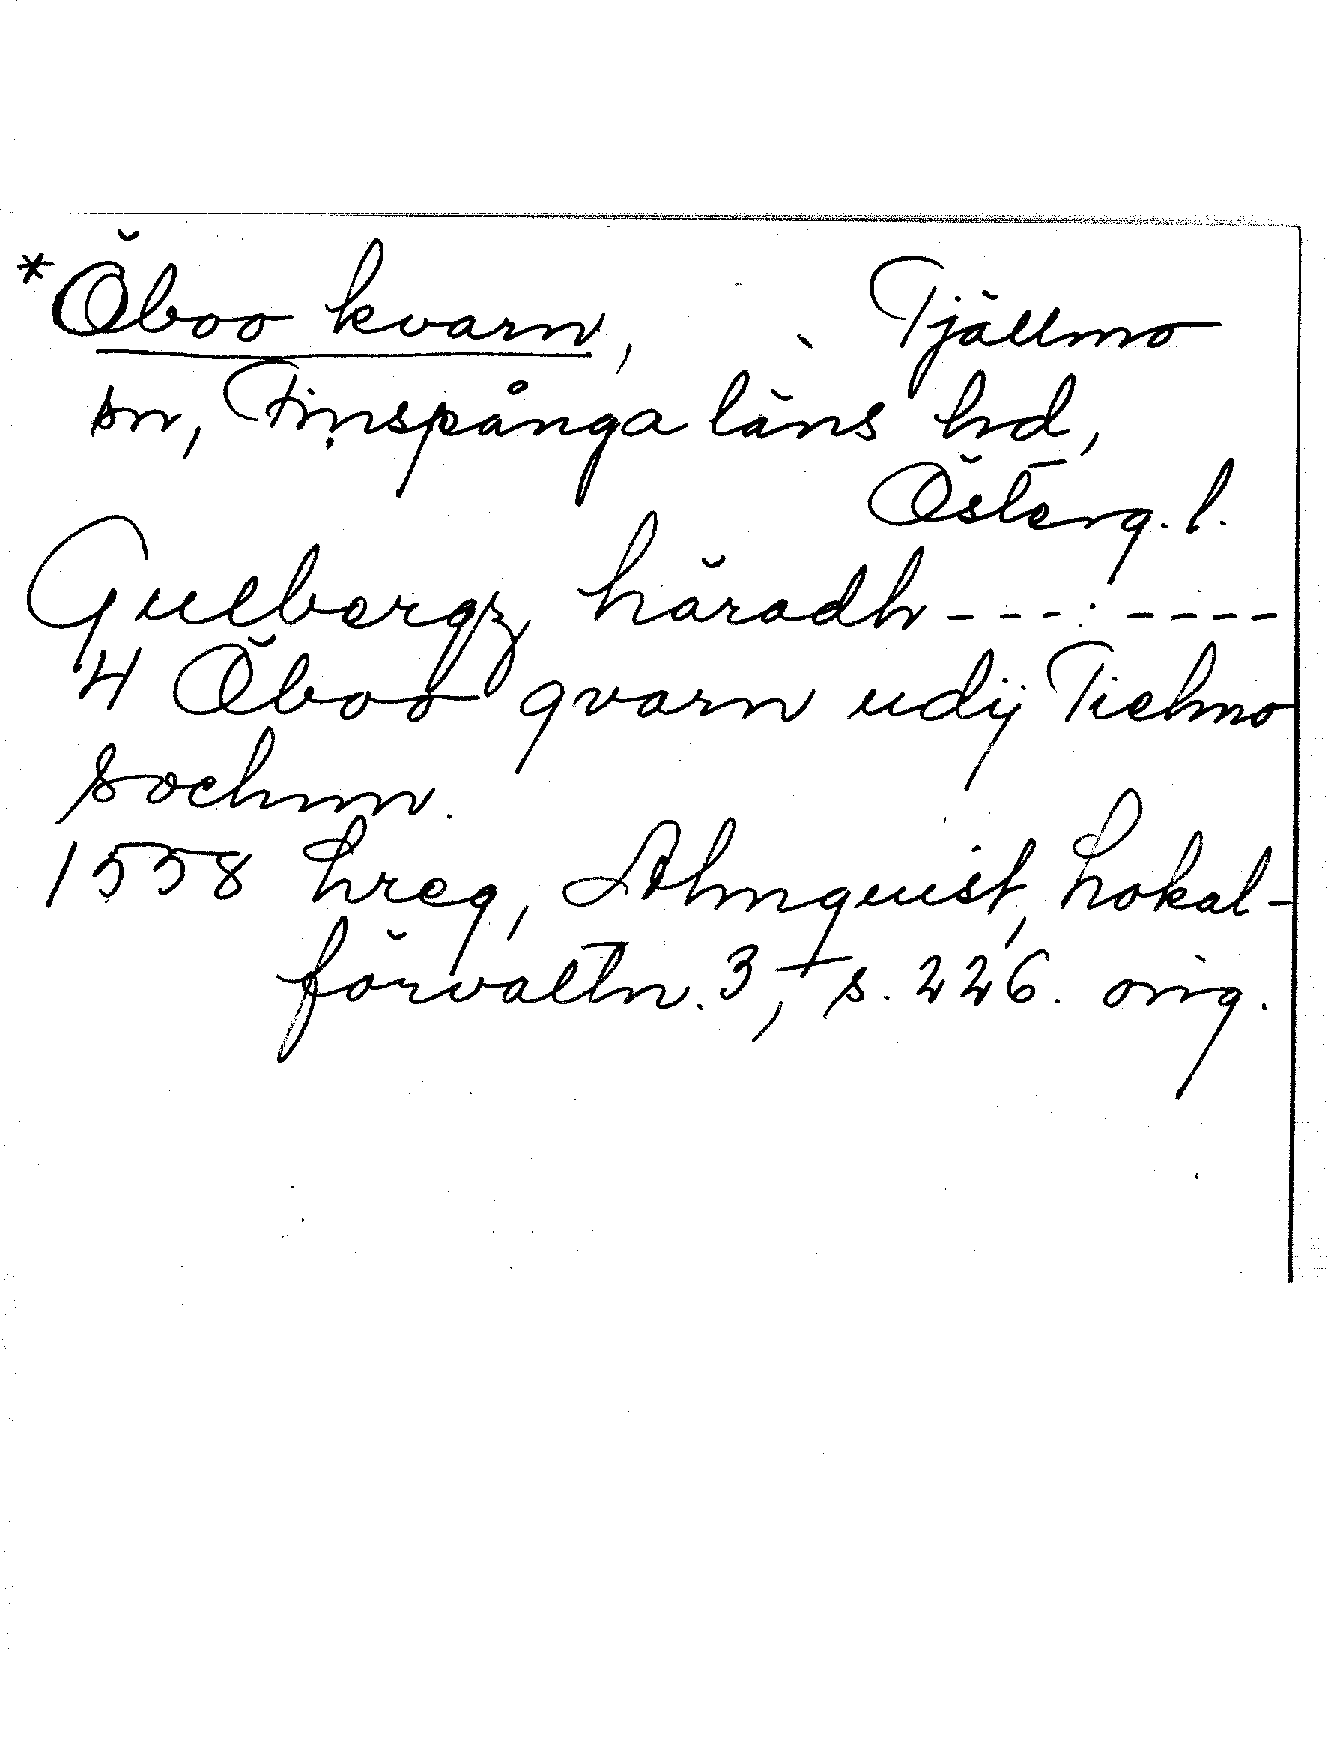 *Öboo kvarn, Tjällmo
sn, Finspånga läns hd,
Österg. l.
Gulbergz häradh - - - : - - - -
4 Öboo qvarn udij Tielmo
sochnn.
1558 Lreg, Almquist, Lokal-
förvaltn. 3, s. 226. orig.